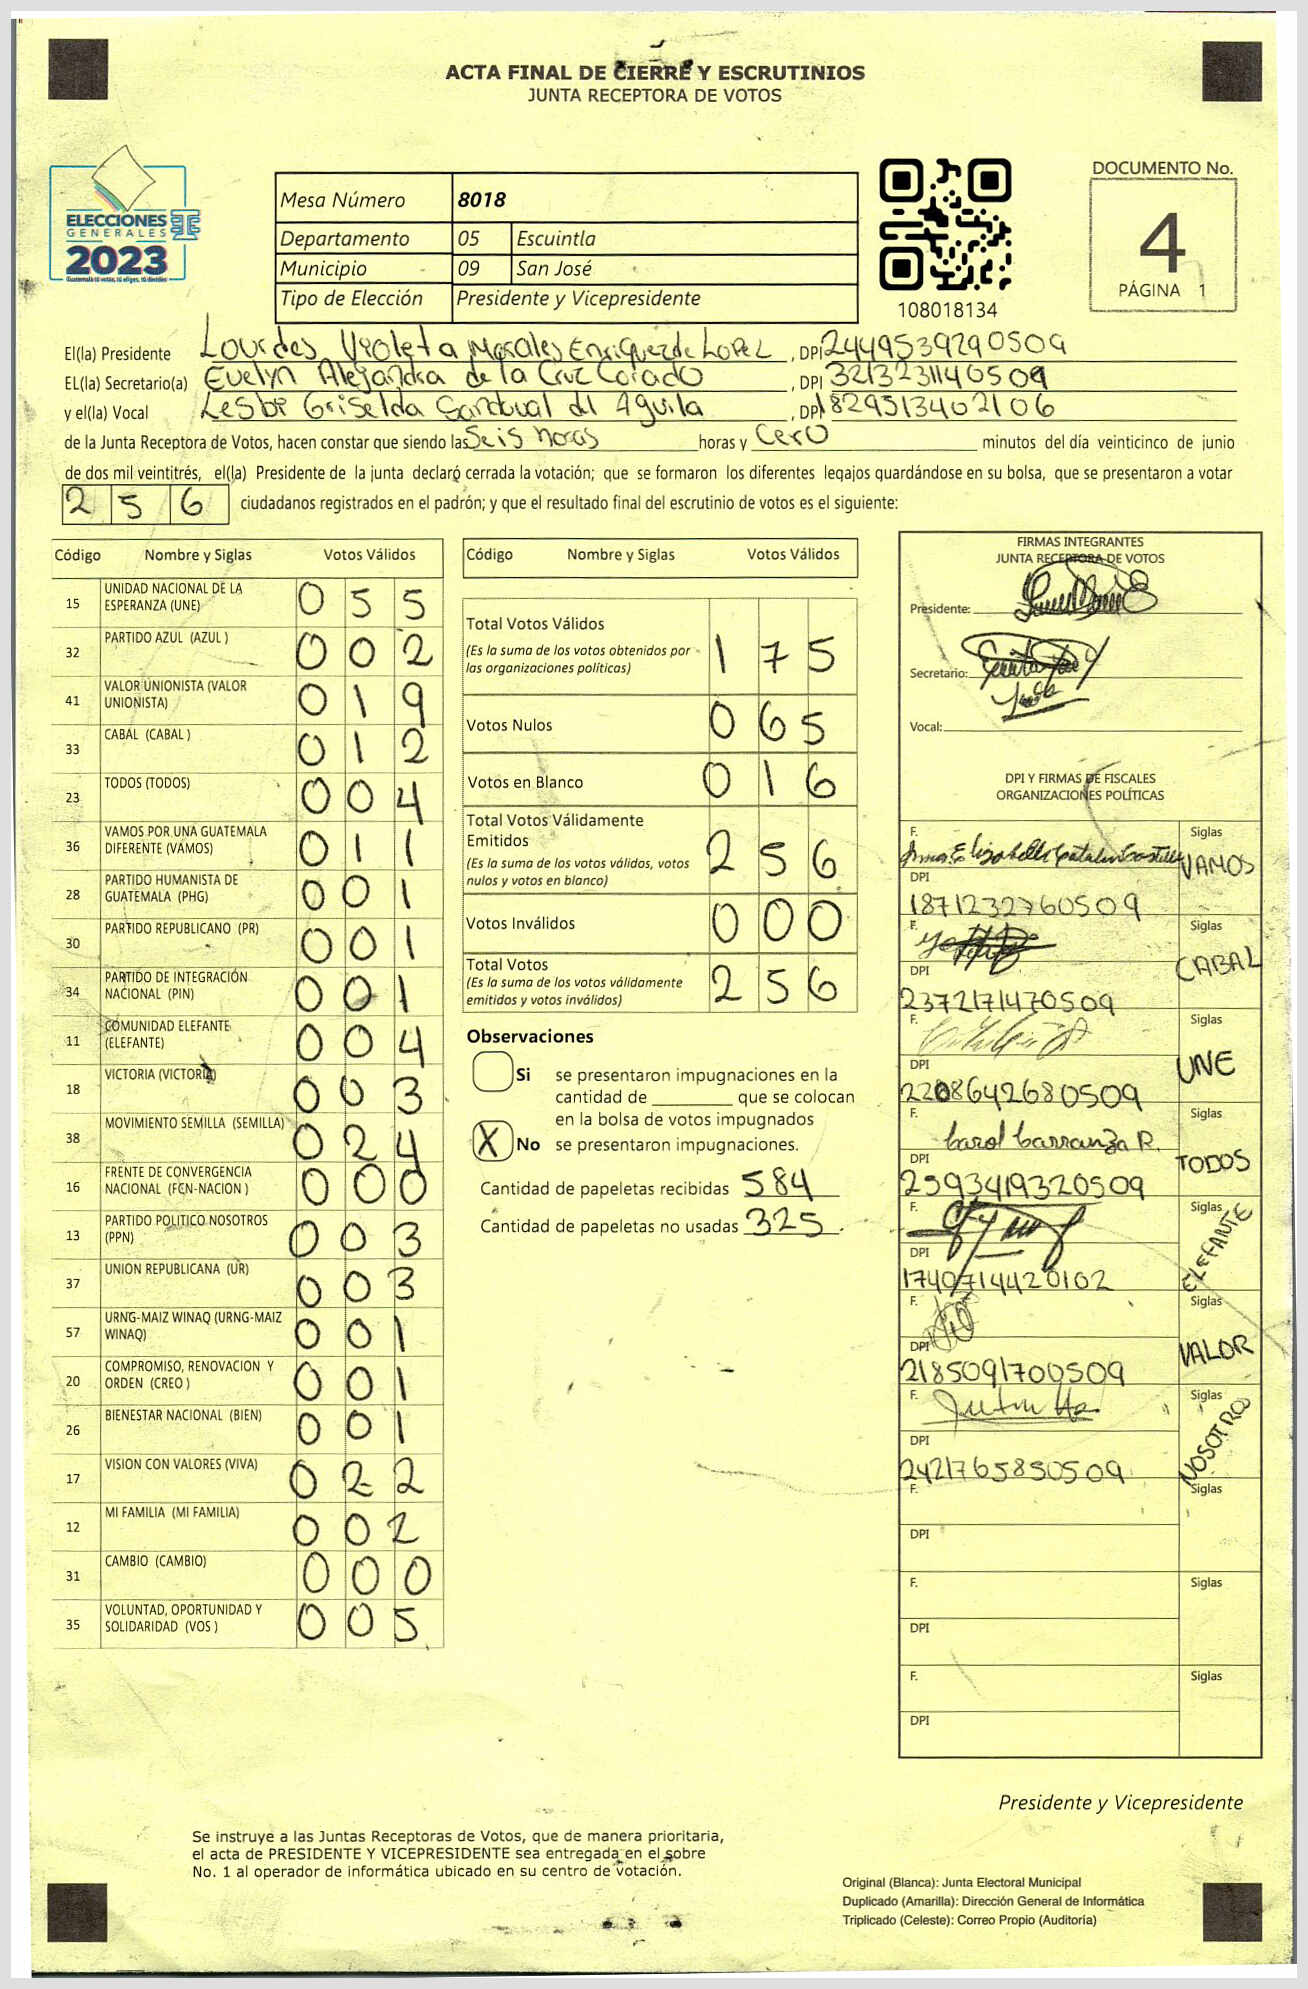 ACTA FINAL DE CIERRE Y ESCRUTINIOS
JUNTA RECEPTORA DE VOTOS
ELECCIONES
GENERALES
2023
Mesa Número 8018
Departamento 05 Escuintla
Municipio 09 San José
Tipo de Elección Presidente y Vicepresidente
108018134
DOCUMENTO No.
4
PÁGINA 1
El(la) Presidente Lourdes Violeta Morales Enriquez de Lopez , DPI 2449539290509
EL(la) Secretario(a) Evelyn Alejandra de la Cruz Corado , DPI 3213231140509
y el(la) Vocal Lesbi Griselda Sandoval del Aguila , DPI 1829513402106
de la Junta Receptora de Votos, hacen constar que siendo las Seis horas horas y Cero minutos del día veinticinco de junio
de dos mil veintitrés, el(la) Presidente de la junta declaró cerrada la votación; que se formaron los diferentes legajos guardándose en su bolsa, que se presentaron a votar
256 ciudadanos registrados en el padrón; y que el resultado final del escrutinio de votos es el siguiente:
Código Nombre y Siglas Votos Válidos
15 UNIDAD NACIONAL DE LA ESPERANZA (UNE) 055
32 PARTIDO AZUL (AZUL ) 002
41 VALOR UNIONISTA (VALOR UNIONISTA) 019
33 CABAL (CABAL ) 012
23 TODOS (TODOS) 004
36 VAMOS POR UNA GUATEMALA DIFERENTE (VAMOS) 011
28 PARTIDO HUMANISTA DE GUATEMALA (PHG) 001
30 PARTIDO REPUBLICANO (PR) 001
34 PARTIDO DE INTEGRACIÓN NACIONAL (PIN) 001
11 COMUNIDAD ELEFANTE (ELEFANTE) 004
18 VICTORIA (VICTORIA) 003
38 MOVIMIENTO SEMILLA (SEMILLA) 024
16 FRENTE DE CONVERGENCIA NACIONAL (FCN-NACION ) 000
13 PARTIDO POLITICO NOSOTROS (PPN) 003
37 UNION REPUBLICANA (UR) 003
57 URNG-MAIZ WINAQ (URNG-MAIZ WINAQ) 001
20 COMPROMISO, RENOVACION Y ORDEN (CREO ) 001
26 BIENESTAR NACIONAL (BIEN) 001
17 VISION CON VALORES (VIVA) 022
12 MI FAMILIA (MI FAMILIA) 002
31 CAMBIO (CAMBIO) 000
35 VOLUNTAD, OPORTUNIDAD Y SOLIDARIDAD (VOS ) 005
Código Nombre y Siglas Votos Válidos
Total Votos Válidos 175
(Es la suma de los votos obtenidos por
las organizaciones políticas)
Votos Nulos 065
Votos en Blanco 016
Total Votos Válidamente
Emitidos 256
(Es la suma de los votos válidos, votos
nulos y votos en blanco)
Votos Inválidos 000
Total Votos 256
(Es la suma de los votos válidamente
emitidos y votos inválidos)
Observaciones
Si se presentaron impugnaciones en la
cantidad de ________ que se colocan
en la bolsa de votos impugnados
X No se presentaron impugnaciones.
Cantidad de papeletas recibidas 584
Cantidad de papeletas no usadas 325
FIRMAS INTEGRANTES
JUNTA RECEPTORA DE VOTOS
Presidente:
Secretario:
Vocal:
DPI Y FIRMAS DE FISCALES
ORGANIZACIONES POLÍTICAS
F. Siglas
VAMOS
DPI
1871232760509
F. Siglas
CABAL
DPI
2372171470509
F. Siglas
UNE
DPI
2208642680509
F. Carol Carranza R. Siglas
TODOS
DPI
2593419320509
F. Siglas
ELEFANTE
DPI
1749714420102
F. Siglas
VALOR
DPI
2185091700509
F. Siglas
NOSOTROS
DPI
2421765850509
F. Siglas
DPI
F. Siglas
DPI
F. Siglas
DPI
Presidente y Vicepresidente
Se instruye a las Juntas Receptoras de Votos, que de manera prioritaria,
el acta de PRESIDENTE Y VICEPRESIDENTE sea entregada en el sobre
No. 1 al operador de informática ubicado en su centro de votación.
Original (Blanca): Junta Electoral Municipal
Duplicado (Amarilla): Dirección General de Informática
Triplicado (Celeste): Correo Propio (Auditoría)